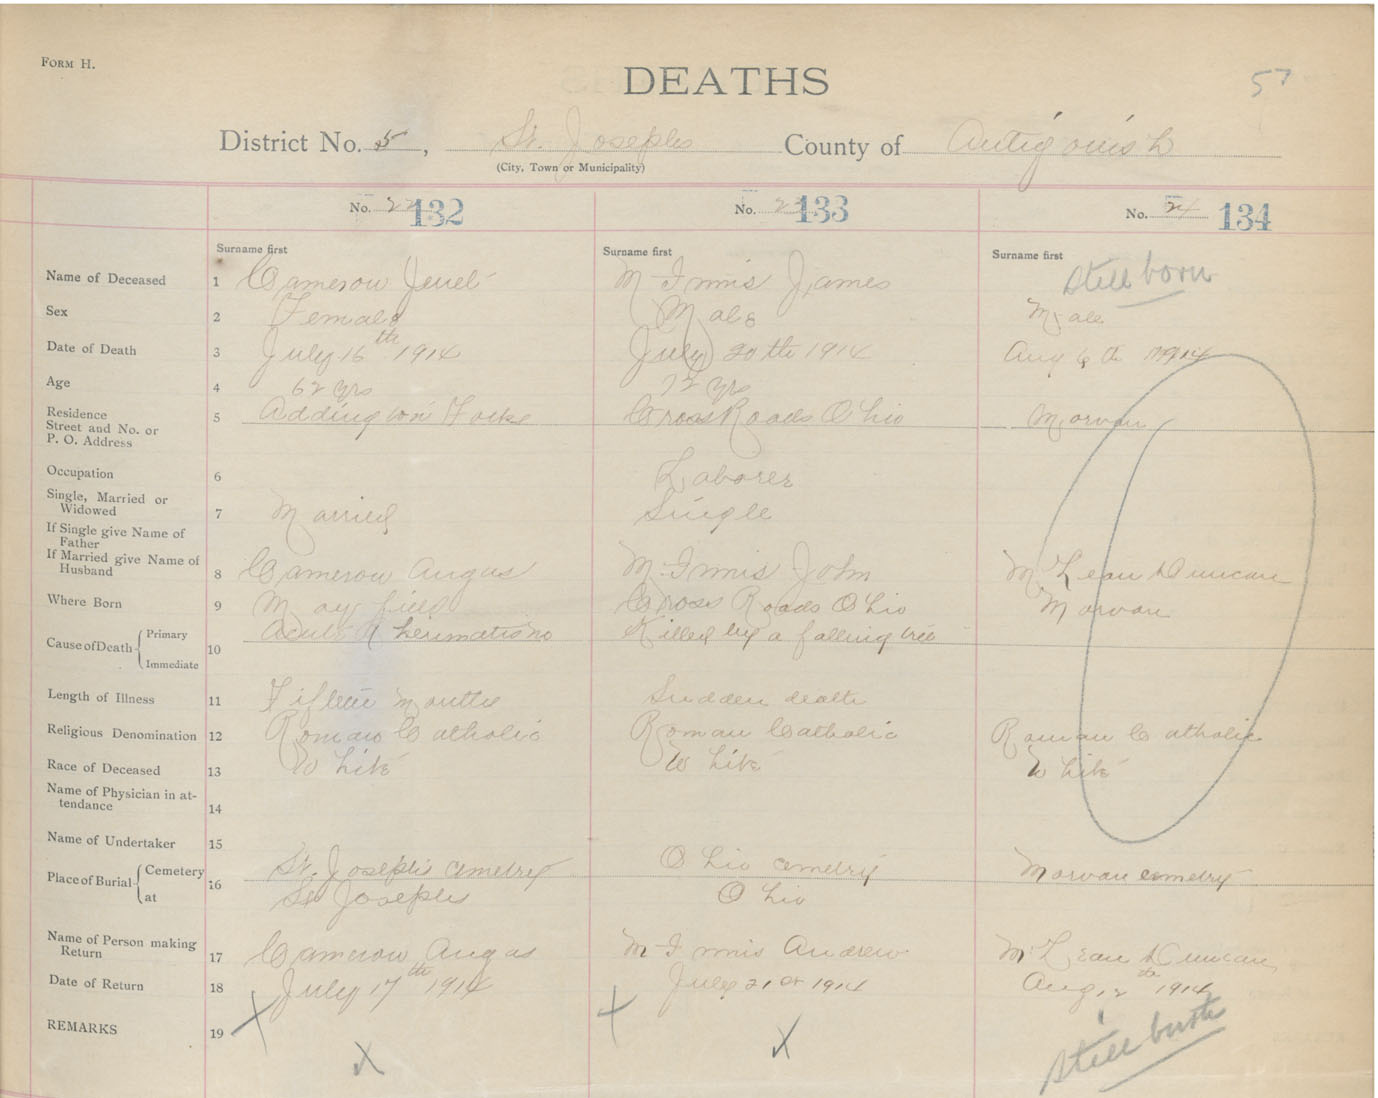 FORM H.
DEATHS
57
District No. 5, St. Josephs County of Antigonish
(City, Town or Municipality)
No. 22 132 No. 23 133 No. 24 134
Surname first Surname first Surname first
Name of Deceased 1 Cameron McInnis James Still born
Sex 2 Female Male Male
Date of Death 3 July 16th 1914 July 20th 1914 Aug 6th 1914
Age 4 62 yrs 72 yrs
Residence
Street and No. or
P. O. Address 5 Addington Forks Cross Roads Ohio Morvan
Occupation 6 Laborer
Single, Married or
Widowed 7 Married Single
If Single give Name of
Father
If Married give Name of
Husband 8 Cameron Angus McInnis John McLean Duncan
Where Born 9 Mayfield Cross Roads Ohio Morvan
Cause of Death Primary 10 Rheumatism Killed by a falling tree
Immediate
Length of Illness 11 Fifteen months Sudden death
Religious Denomination 12 Roman Catholic Roman Catholic Roman Catholic
Race of Deceased 13 White White White
Name of Physician in at-
tendance 14
Name of Undertaker 15
Place of Burial Cemetery 16 St. Joseph's cemetry Ohio cemetry Morvan cemetry
at St Josephs Ohio
Name of Person making
Return 17 Cameron Angus McInnis Andrew McLean Duncan
Date of Return 18 July 17th 1914 July 21st 1914 Aug 12th 1914
REMARKS 19 X X X X Still birth